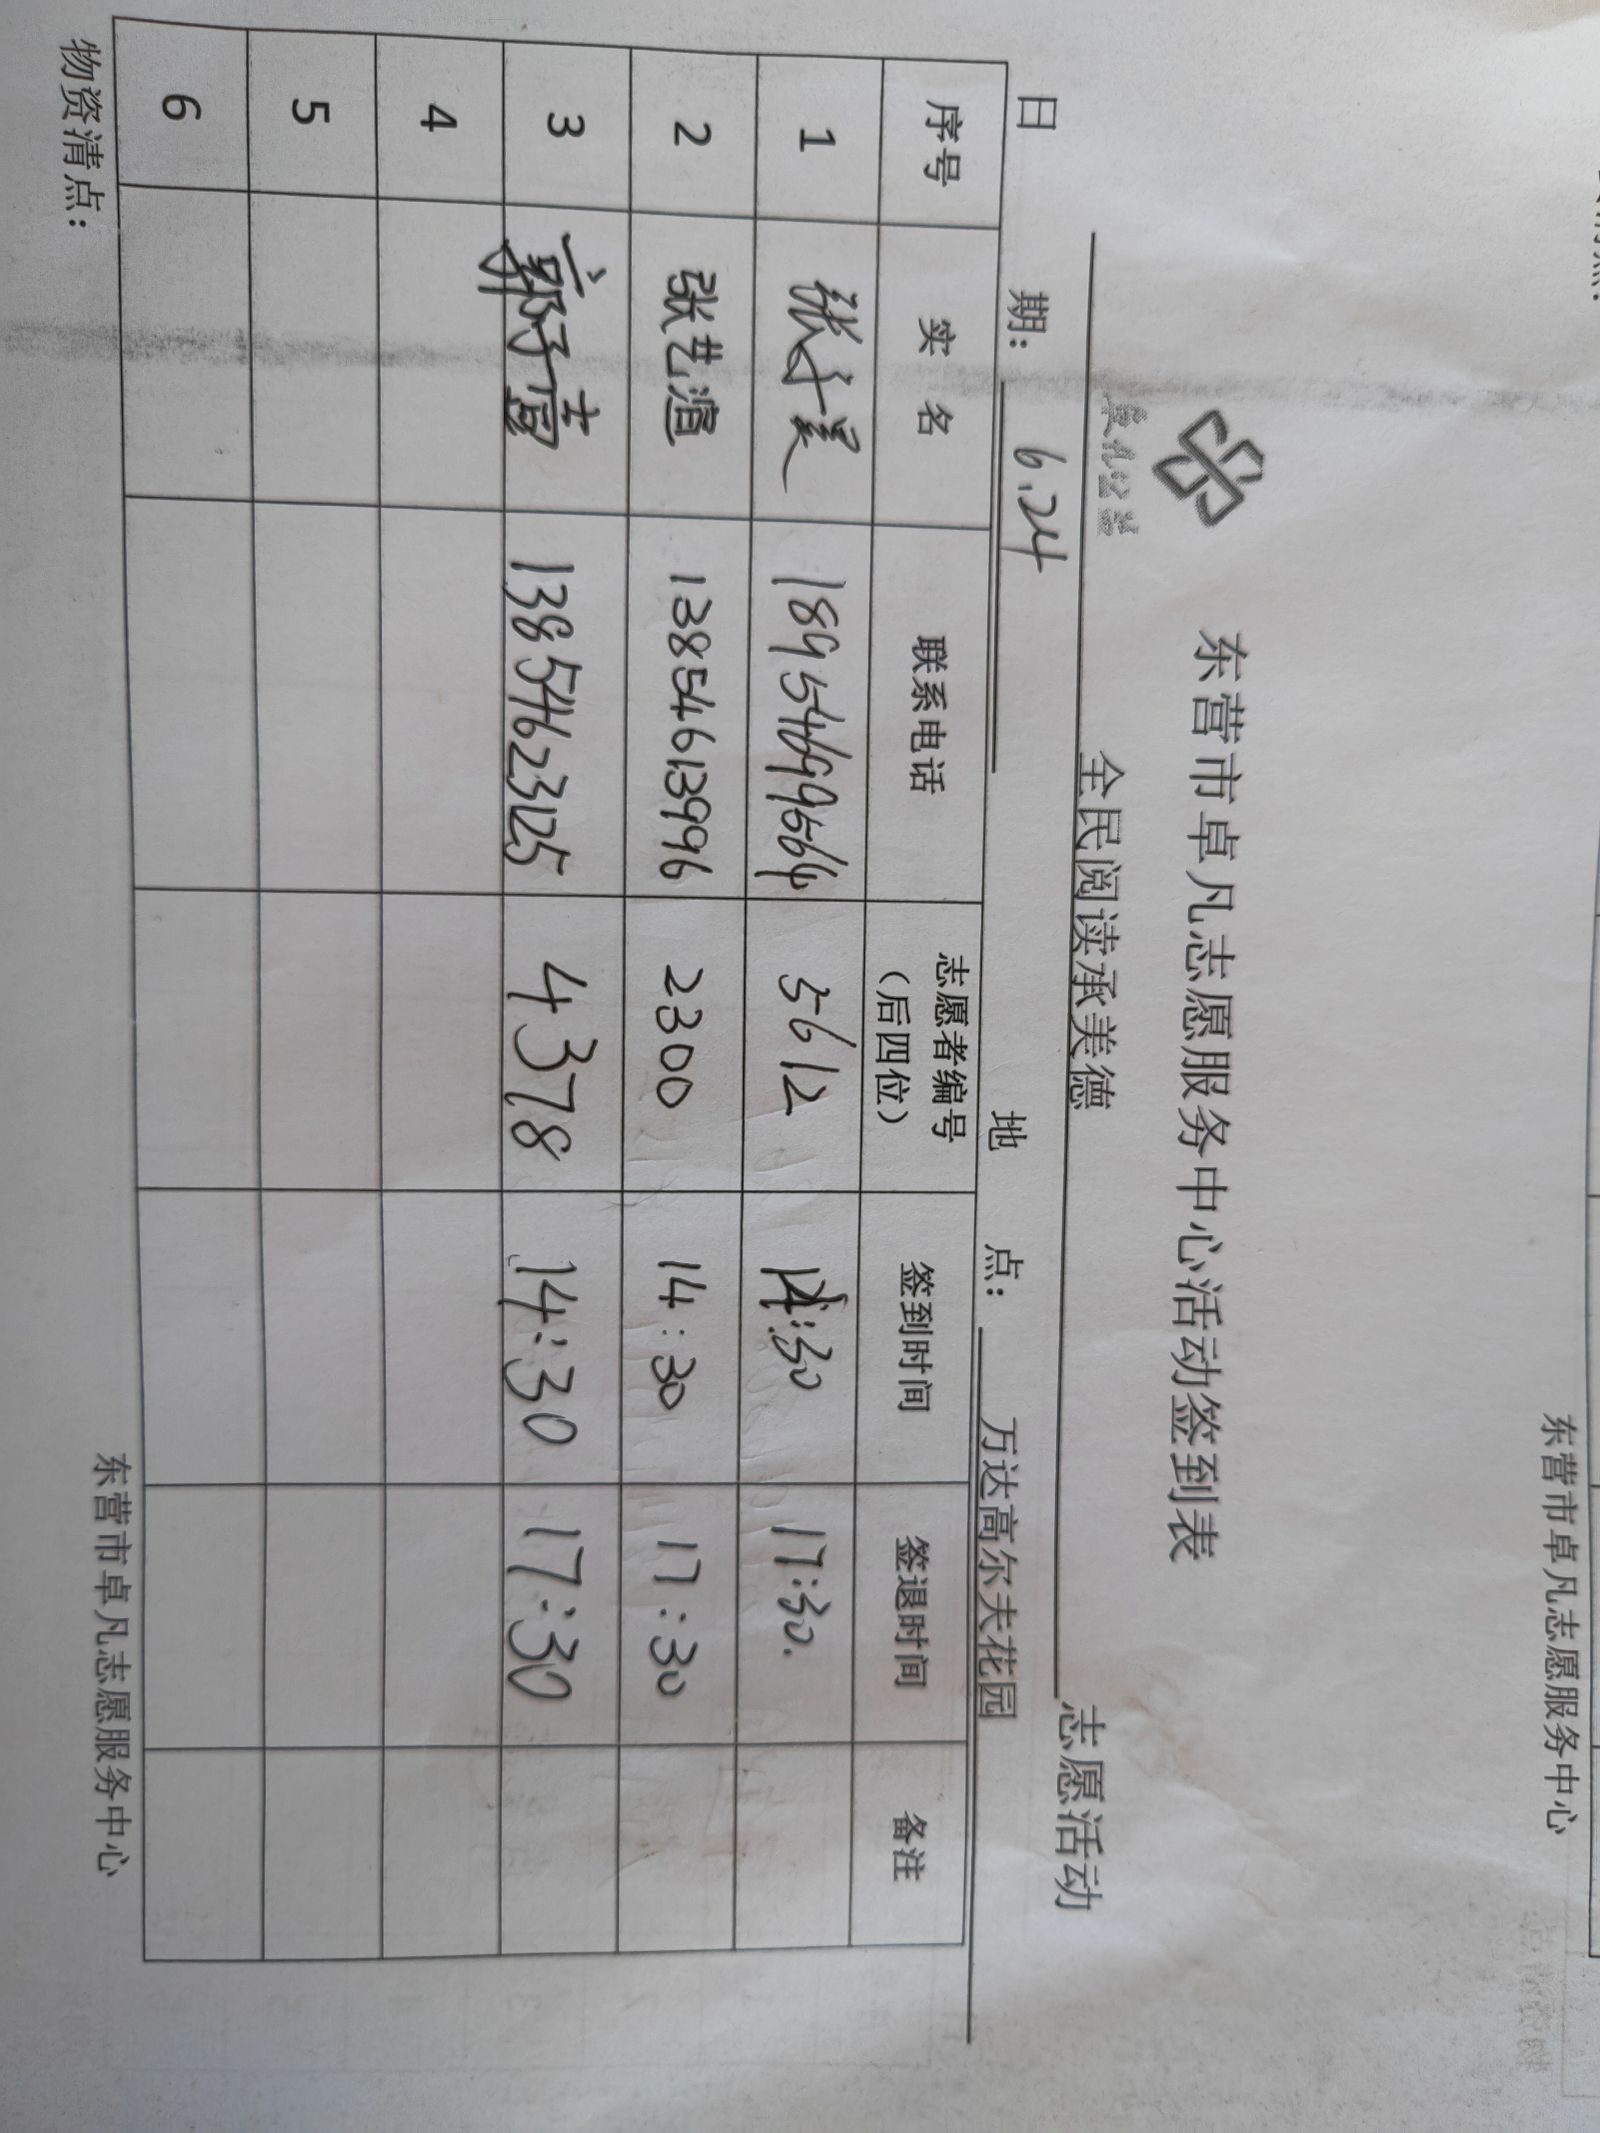 东营市卓凡志愿服务中心活动签到表
卓凡公益
全民阅读承美德 志愿活动
日 期： 6.24 地 点： 万达高尔夫花园
序号 实 名 联系电话 志愿者编号（后四位） 签到时间 签退时间 备注
1 张 5612 14:30 17:30.
2 张艺渲 13854613996 2300 14:30 17:30
3 郭子萱 13854623125 4378 14:30 17:30
4
5
6
物资清点： 东营市卓凡志愿服务中心
东营市卓凡志愿服务中心